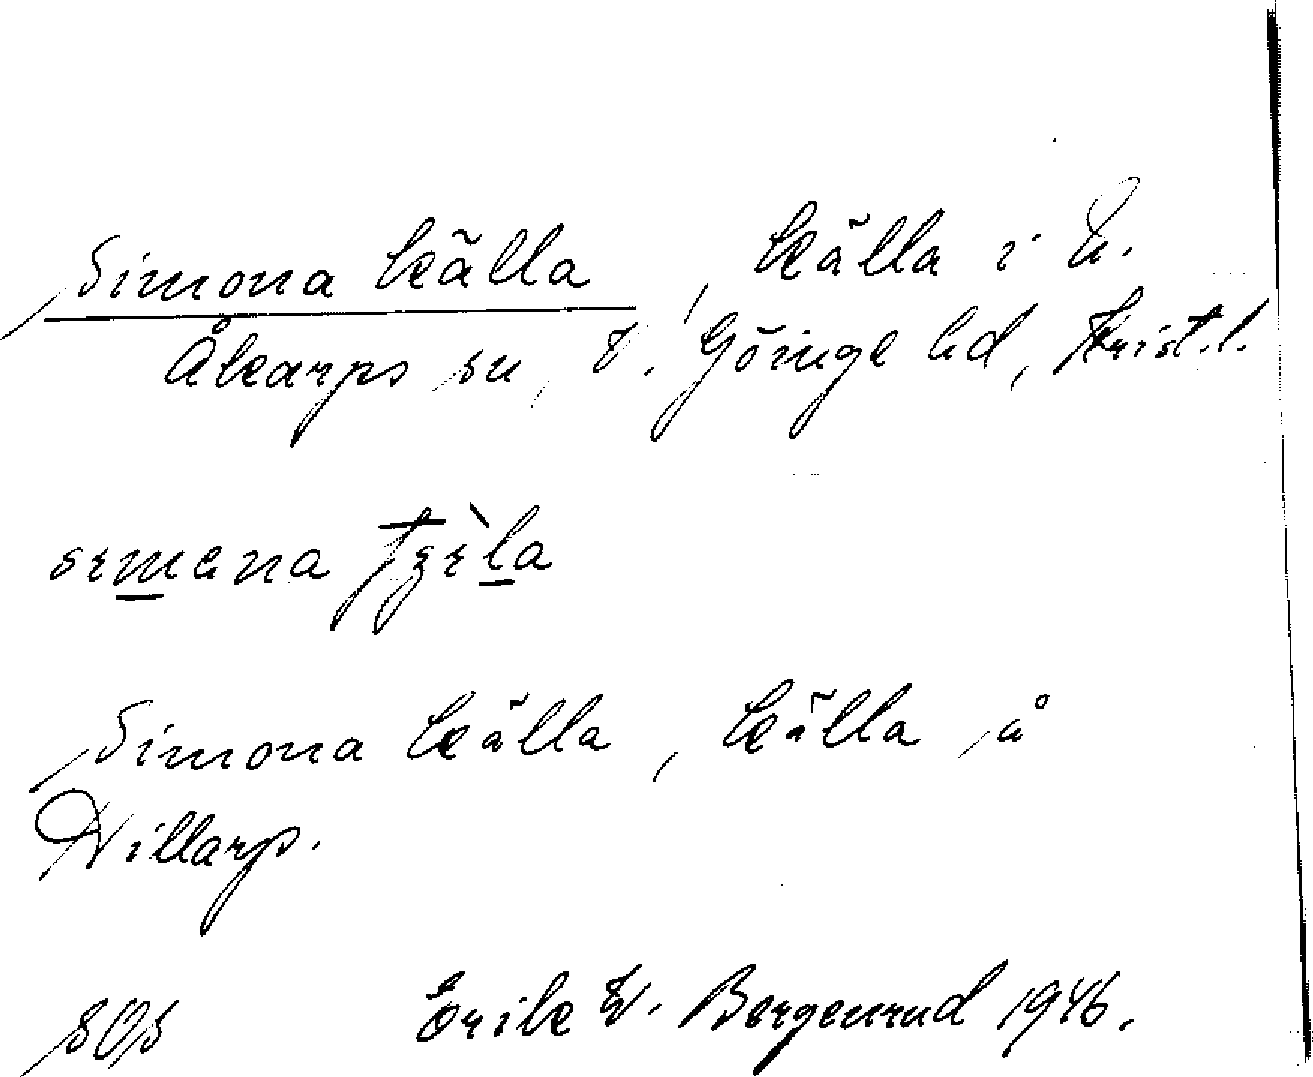 Simona källa, källa i N.
Åkarps sn, V. Göinge hd, Krist. l.
Simona källa, källa å
Willarp.
SOS Erik W. Bergenrud 1946.